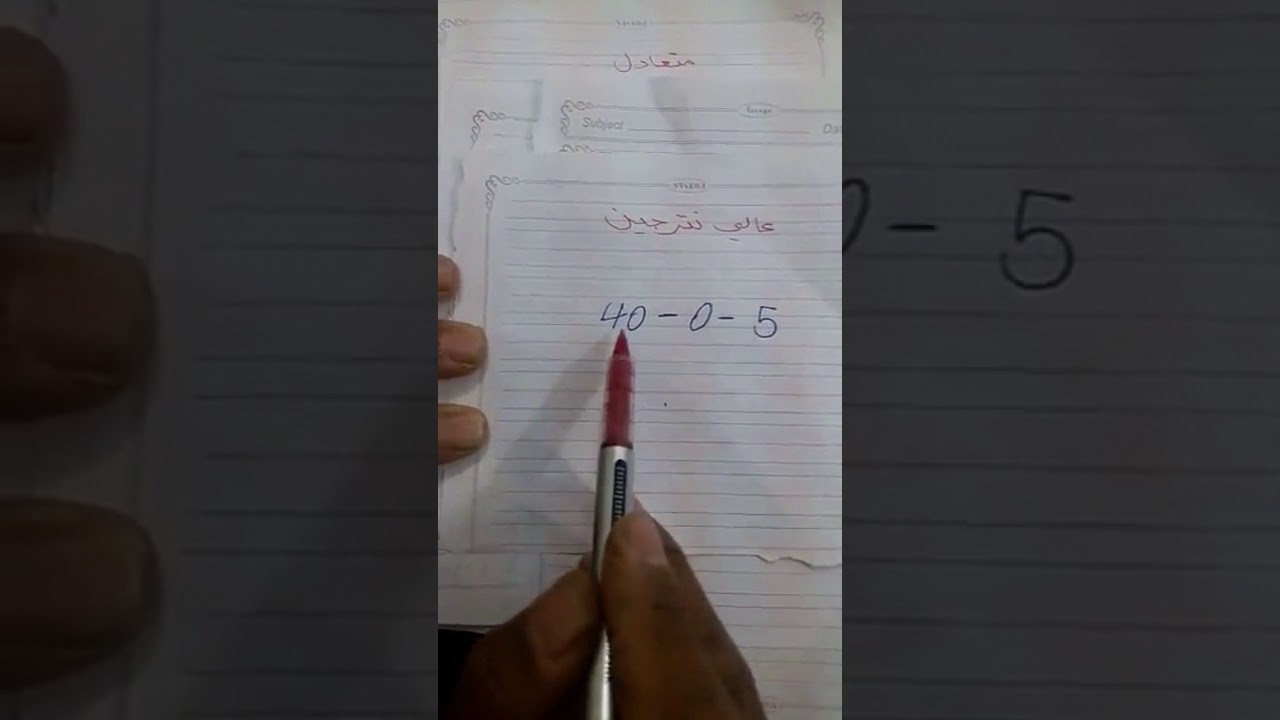 متعادل
Subject
عالي نترجين
40 - 0 - 5